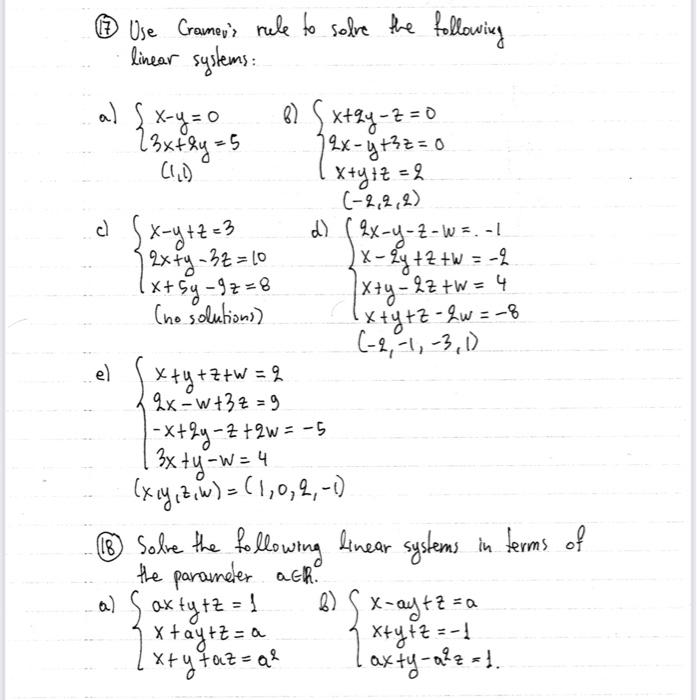 17 Use Cramer's rule to solve the following
linear systems:
a) { x-y=0
3x+2y=5
(1,1)
b) { x+2y-z=0
2x-y+3z=0
x+y+z=2
(-2,2,2)
c) { x-y+z=3
2x+y-3z=10
x+5y-9z=8
(no solutions)
d) { 2x-y-z-w=-1
x-2y+z+w=-2
x+y-2z+w=4
x+y+z-2w=-8
(-2,-1,-3,1)
e) { x+y+z+w=2
2x-w+3z=9
-x+2y-z+2w=-5
3x+y-w=4
(x,y,z,w)=(1,0,2,-1)
18 Solve the following linear systems in terms of
the parameter a∈R.
a) { ax+y+z=1
x+ay+z=a
x+y+az=a²
b) { x-ay+z=a
x+y+z=-1
ax+y-a²z=1.